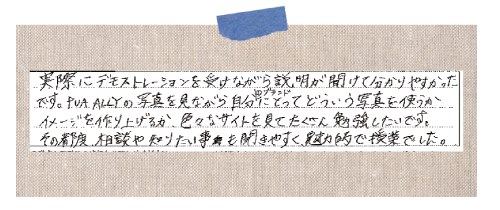 実際にデモストレーションを受けながら説明が聞けて分かりやすかった
です。PUA ALLYの写真を見ながら自分のブランドにとってどういう写真を使うか
イメージを作り上げるか、色々なサイトを見てたくさん勉強したいです。
その都度、相談や知りたい事も聞きやすく、魅力的で授業でした。